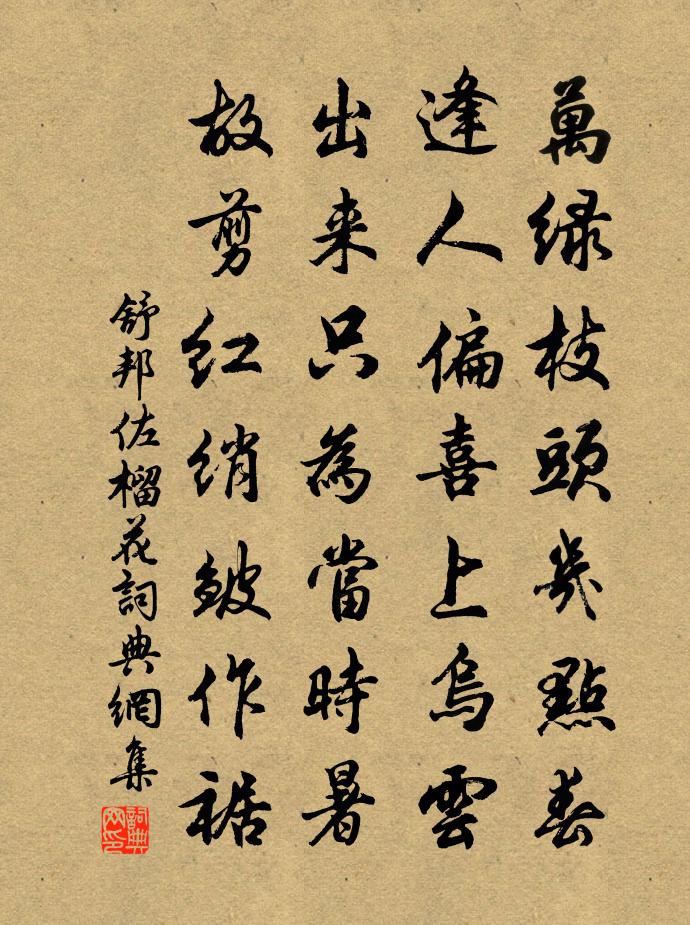 萬緑枝頭幾點春
逢人偏喜上烏雲
出来只為當時暑
故剪紅綃皴作裾
舒邦佐榴花詞典網集
詞典網印